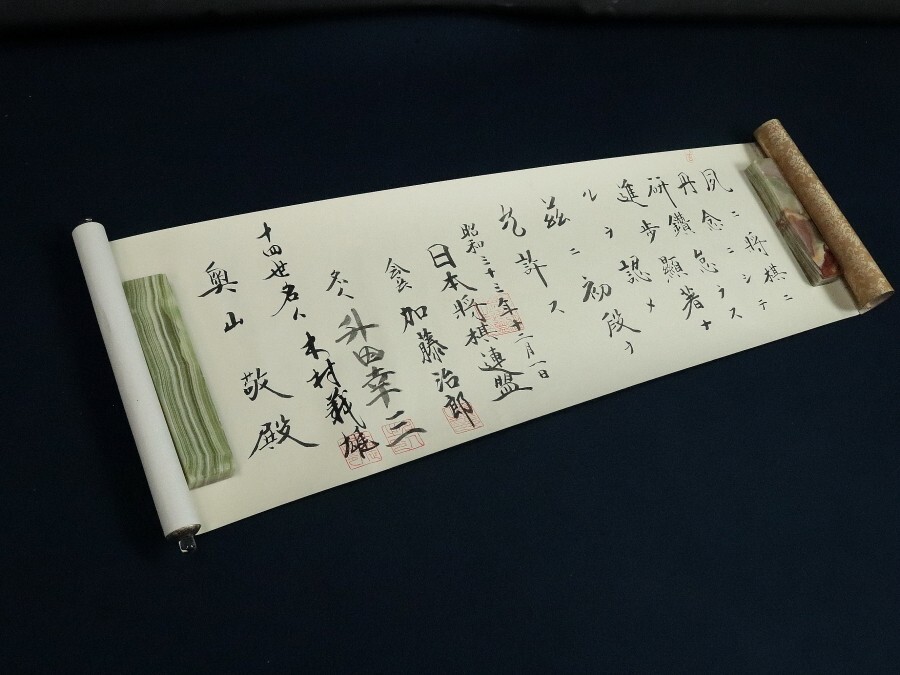 夙ニ将棋ニ
丹念ニシテ
研鑽怠ラス
進歩顕著ナ
ルヲ認メ
茲ニ初段ヲ
允許ス
昭和三十三年十二月一日
日本将棋連盟
会長 加藤治郎
名人 升田幸三
十四世名人 木村義雄
奥山 敬殿